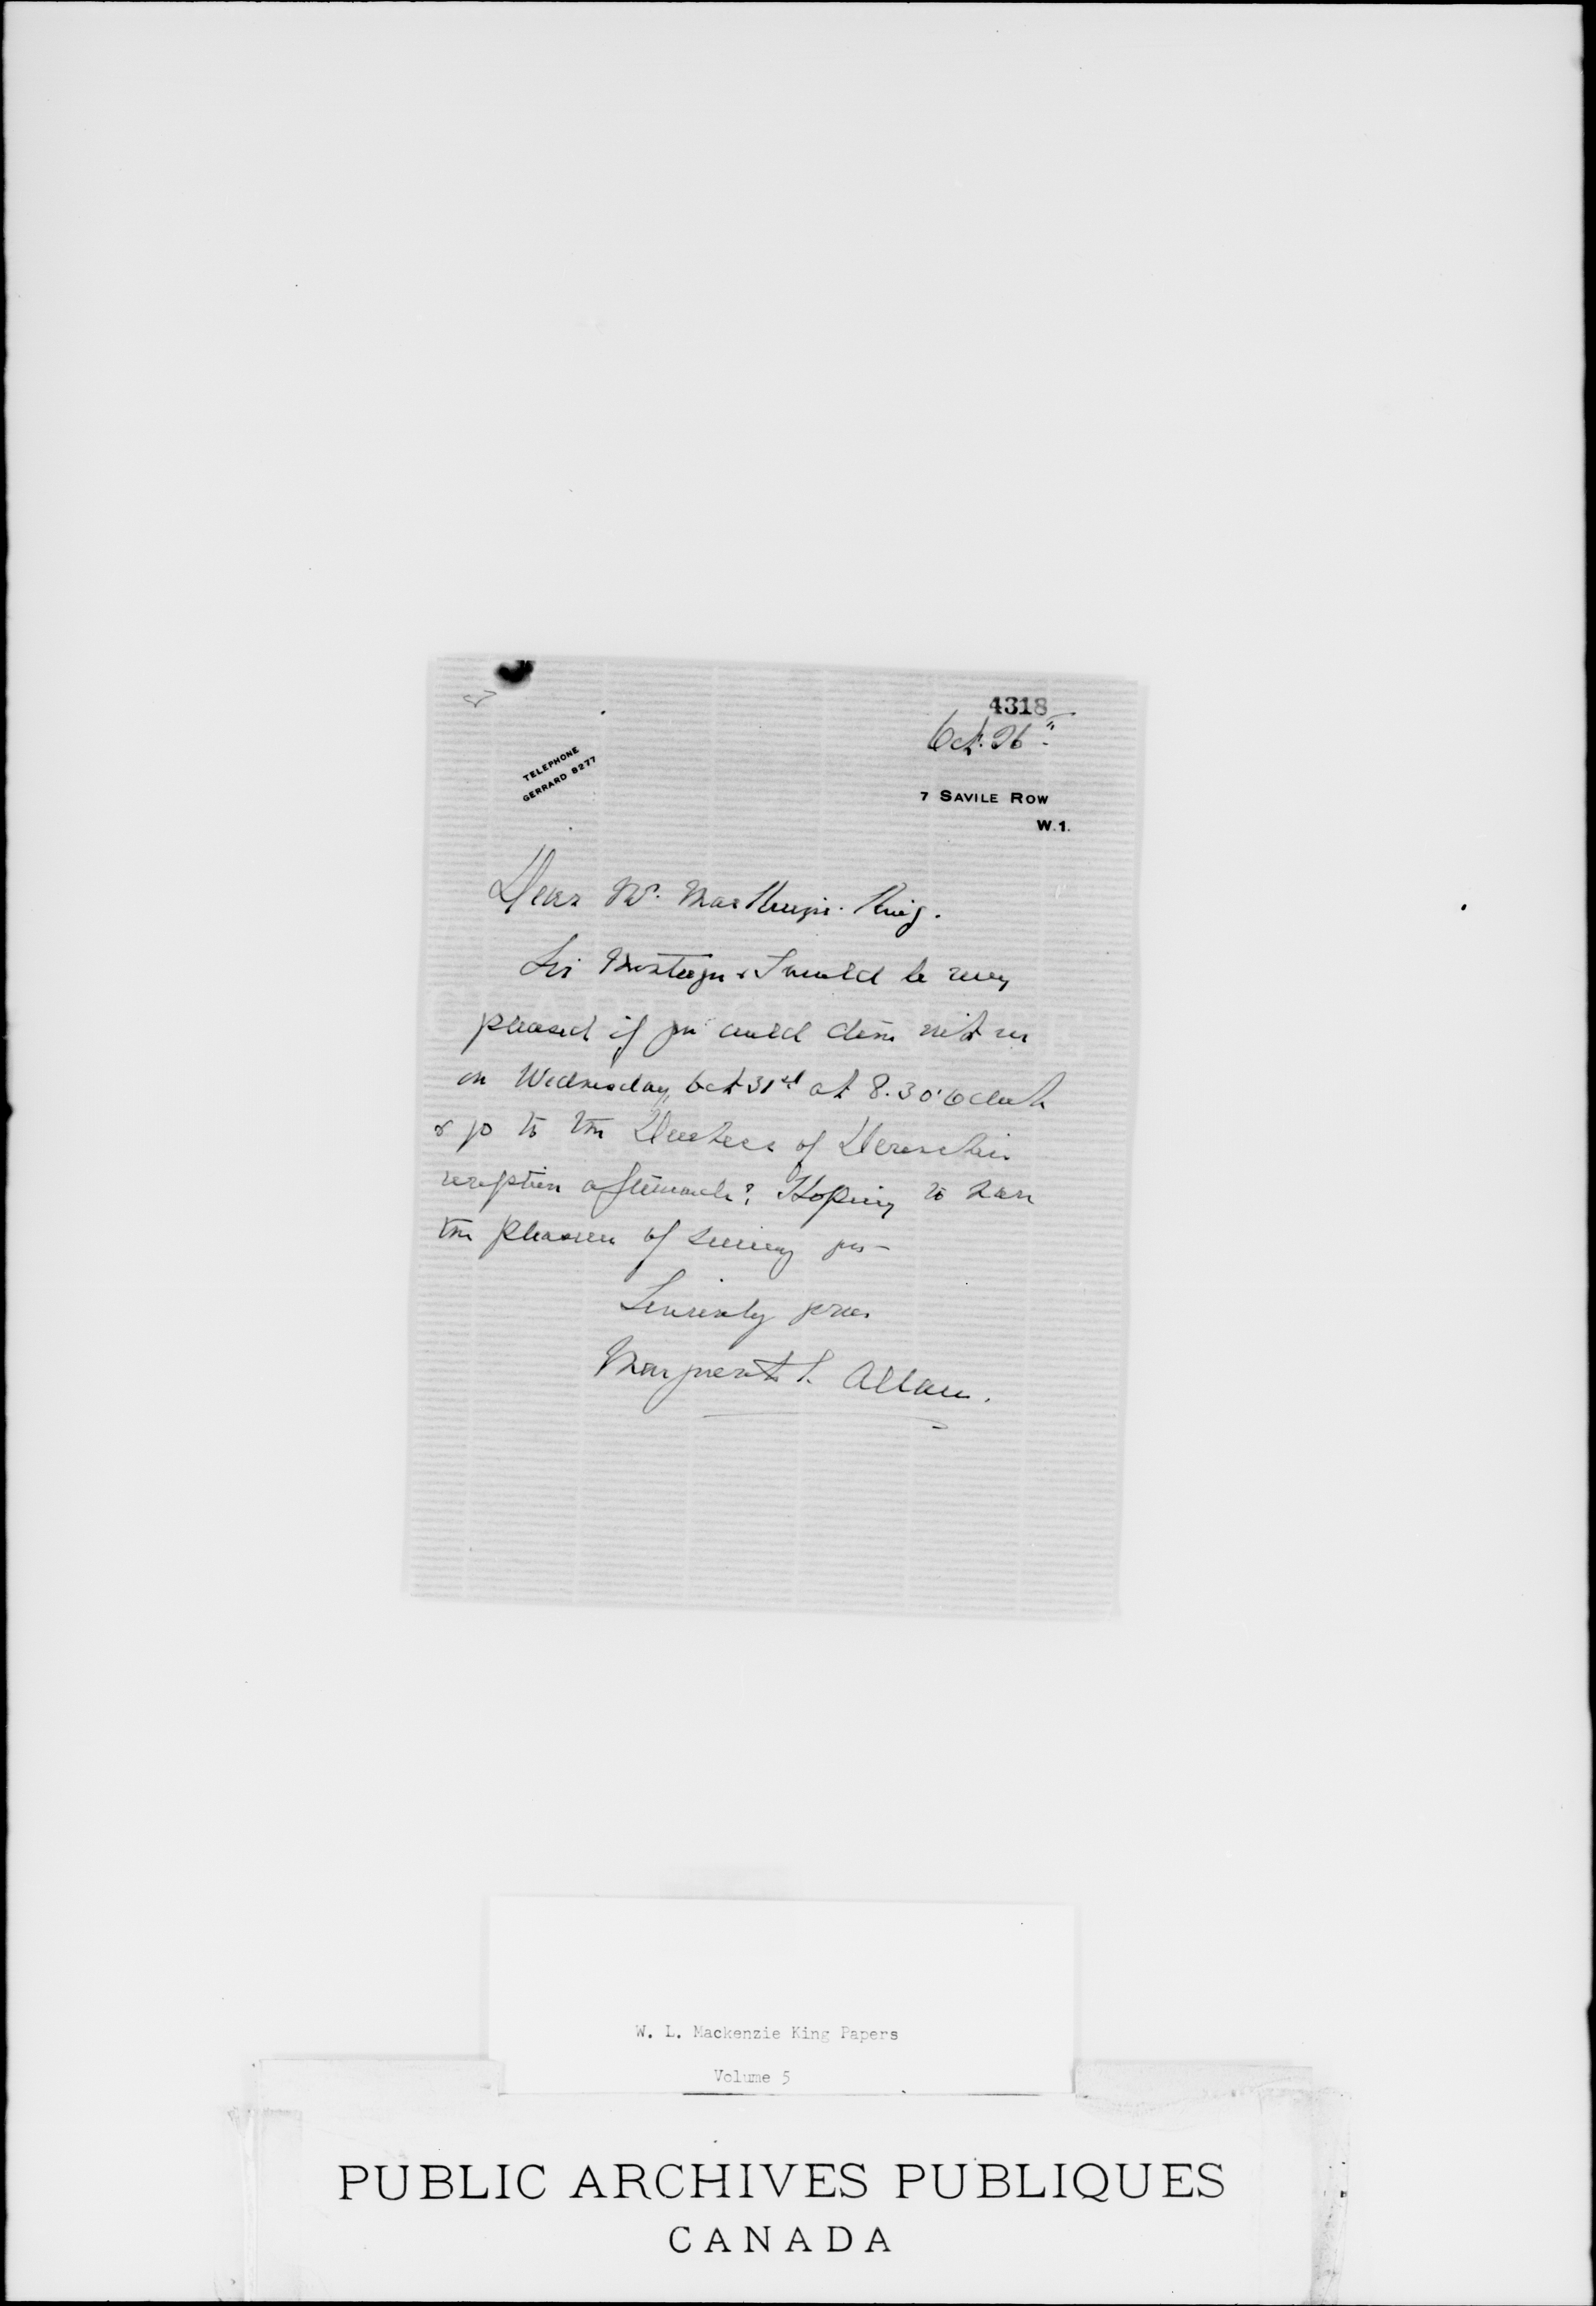 4318
Oct. 26"
TELEPHONE
GERRARD 8277
7 SAVILE ROW
W.1.
Dear Mr. MacKenzie King.
Sir Montagu & I would be very
pleased if you could dine with us
on Wednesday, Oct 31st at 8.30 'Oclock
& go to the Duchess of Devonshire
reception afterwards? Hoping to have
the pleasure of seeing you -
Sincerely yours
Marguerite Allan.
W. L. Mackenzie King Papers
Volume 5
PUBLIC ARCHIVES PUBLIQUES
CANADA